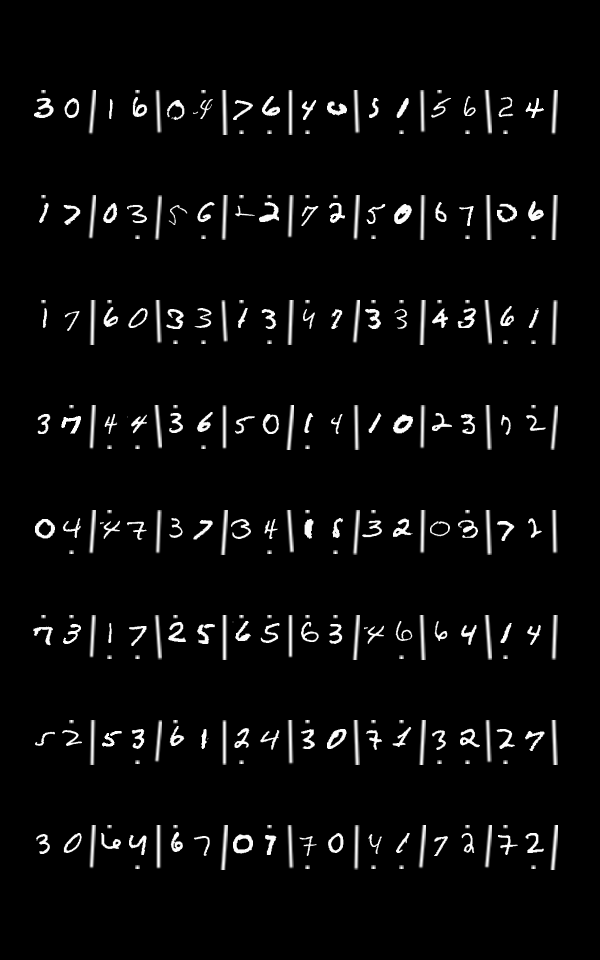 3̇ 0 | 1 6̇ | 0 4̇ | 7̣ 6̣ | 4̣ 0 | 5 1̣ | 5̇ 6̣ | 2̣ 4 |
1̇ 7 | 0 3̣ | 5 6̣ | 1̇ 2̇ | 7̇ 2̇ | 5̣ 0 | 6 7̣ | 0 6̣ |
1̇ 7 | 6̇ 0 | 3̣ 3̣ | 1̇ 3̣ | 4̇ 7 | 3̇ 3̇ | 4̣ 3̇ | 6̣ 1̣ |
3 7̇ | 4̣ 4̣ | 3̇ 6̣ | 5 0 | 1̣ 4 | 1 0 | 2 3 | 7 2̇ |
0 4̣ | 4̇ 7 | 3 7 | 3 4̣ | 1̇ 5̣ | 3̇ 2 | 0 3̇ | 7 2 |
7̇ 3̇ | 1̣ 7̣ | 2̇ 5 | 6̇ 5̇ | 6̇ 3̇ | 4 6̣ | 6 4 | 1̣ 4 |
5 2̇ | 5 3̣ | 6̇ 1 | 2̣ 4 | 3̇ 0 | 7̇ 1̇ | 3̣ 2̣ | 2̣ 7 |
3 0 | 6̇ 4̣ | 6̇ 7 | 0 7̇ | 7̣ 0 | 4̣ 1̣ | 7 2̇ | 7̇ 2̣ |